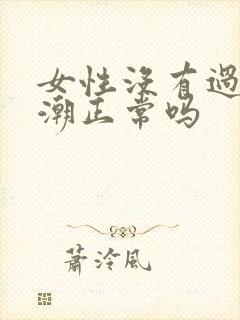 女性没有過
潮正常吗
蕭泠風